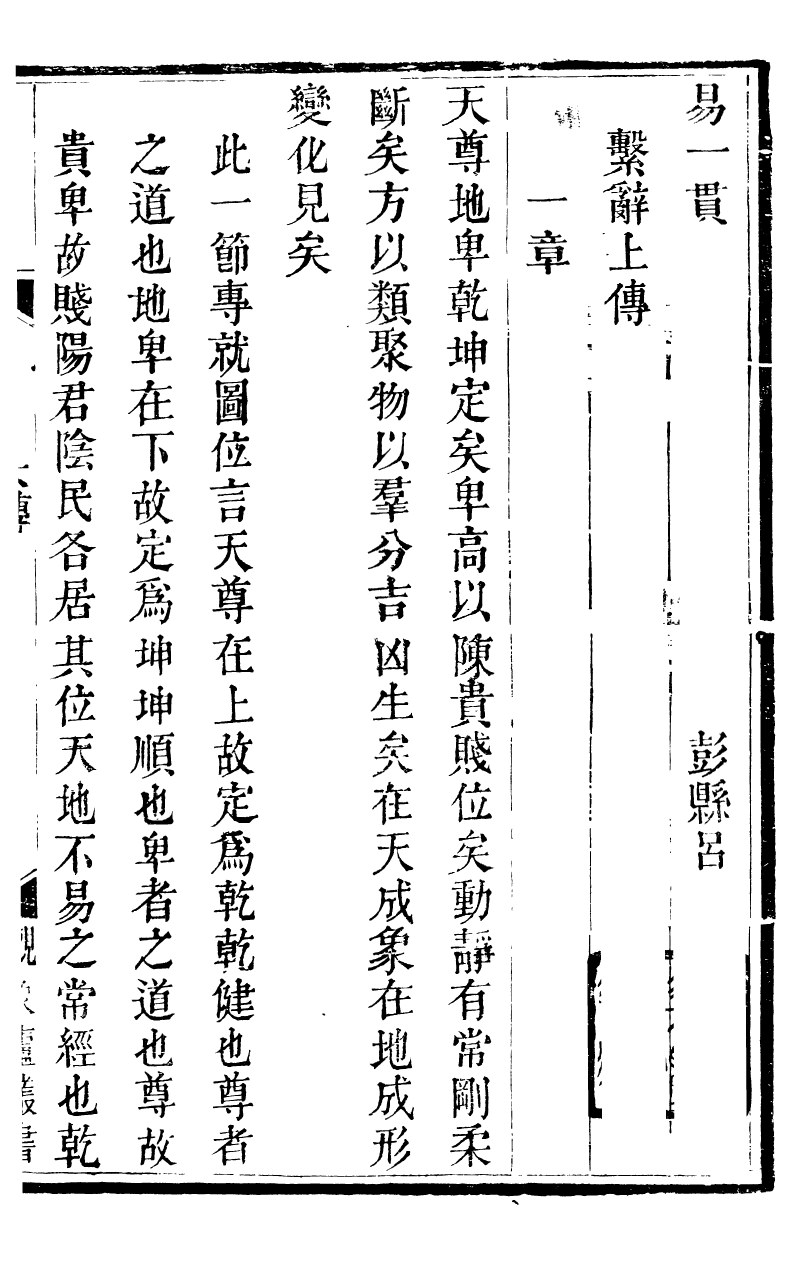 易一貫
彭縣呂
繫辭上傳
一章
天尊地卑乾坤定矣卑高以陳貴賤位矣動靜有常剛柔
斷矣方以類聚物以羣分吉凶生矣在天成象在地成形
變化見矣
此一節專就圖位言天尊在上故定爲乾乾健也尊者
之道也地卑在下故定爲坤坤順也卑者之道也尊故
貴卑故賤陽君陰民各居其位天地不易之常經也乾
觀象廬叢書